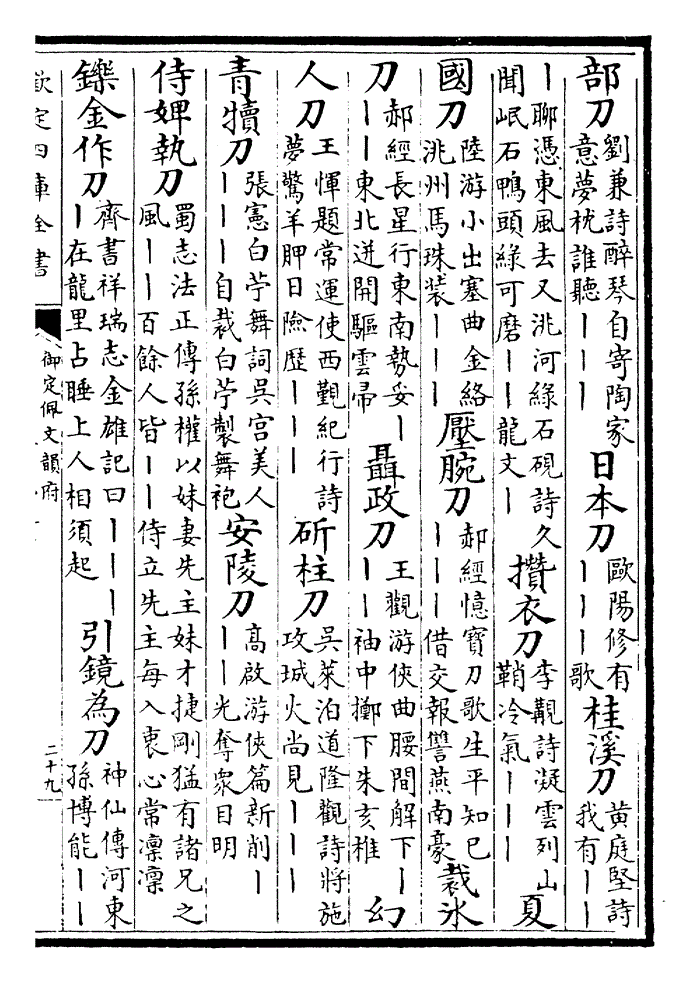 部刀劉兼詩醉琴自寄陶家意夢枕誰聽｜｜｜日本刀歐陽修有｜｜｜歌桂溪刀黄庭堅詩我有｜｜
｜聊憑東風去又洮河綠石硯詩久聞岷石鴨頭綠可磨｜｜龍文｜攢衣刀李覯詩凝雲列山鞘冷氣｜｜｜夏
國刀陸游小出塞曲金絡洮州馬珠裝｜｜｜壓腕刀郝經憶寶刀歌生平知已｜｜｜借交報讐燕南豪裁氷
刀郝經長星行東南勢妥｜｜｜東北迸開驅雲帚聶政刀王觀游俠曲腰間解下｜｜｜袖中擲下朱亥椎幻
人刀王惲題常運使西觐紀行詩夢驚羊胛日險歴｜｜｜斫柱刀吳萊泊道隆觀詩將施攻城火尚見｜｜｜
青犢刀張憲白苧舞詞吳宫美人｜｜｜自裁白苧製舞袍安陵刀髙啟游俠篇新削｜｜｜光奪衆目明
侍婢執刀蜀志法正傳孫權以妹妻先主妹才捷剛猛有諸兄之風｜｜百餘人皆｜｜侍立先主每入衷心常凛凛
鑠金作刀齊書祥瑞志金雄記曰｜｜｜｜在龍里占睡上人相須起引鏡為刀神仙傳河東孫博能｜｜
欽定四庫全書
御定佩文韻府
二十九